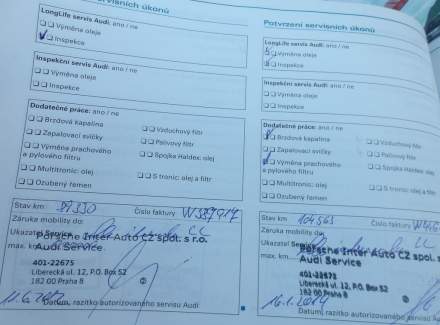 servisních úkonů
LongLife servis Audi: ano / ne
Výměna oleje
Inspekce
Inspekční servis Audi: ano / ne
Výměna oleje
Inspekce
Dodatečné práce: ano / ne
Brzdová kapalina
Zapalovací svíčky
Vzduchový filtr
Výměna prachového
a pylového filtru
Palivový filtr
Spojka Haldex: olej
Multitronic: olej
Ozubený řemen
S tronic: olej a filtr
Stav km
Číslo faktury
Záruka mobility do:
Ukazatel Service
Porsche Inter Auto CZ spol. s r.o.
max. km
Audi Service
401-22675
Liberecká ul. 12, P.O. Box 52
182 00 Praha 8
Datum, razítko autorizovaného servisu Audi
Potvrzení servisních úkonů
LongLife servis Audi: ano / ne
Výměna oleje
Inspekce
Inspekční servis Audi: ano / ne
Výměna oleje
Inspekce
Dodatečné práce: ano / ne
Brzdová kapalina
Vzduchový filtr
Zapalovací svíčky
Palivový filtr
Výměna prachového
a pylového filtru
Spojka Haldex: olej
Multitronic: olej
S tronic: olej a filtr
Ozubený řemen
Stav km 104563
Číslo faktury
Záruka mobility do:
Ukazatel Service
Porsche Inter Auto CZ spol. s
max. km
Audi Service
401-22675
Liberecká ul. 12, P.O. Box 52
182 00 Praha 8
Datum, razítko autorizovaného servisu Au